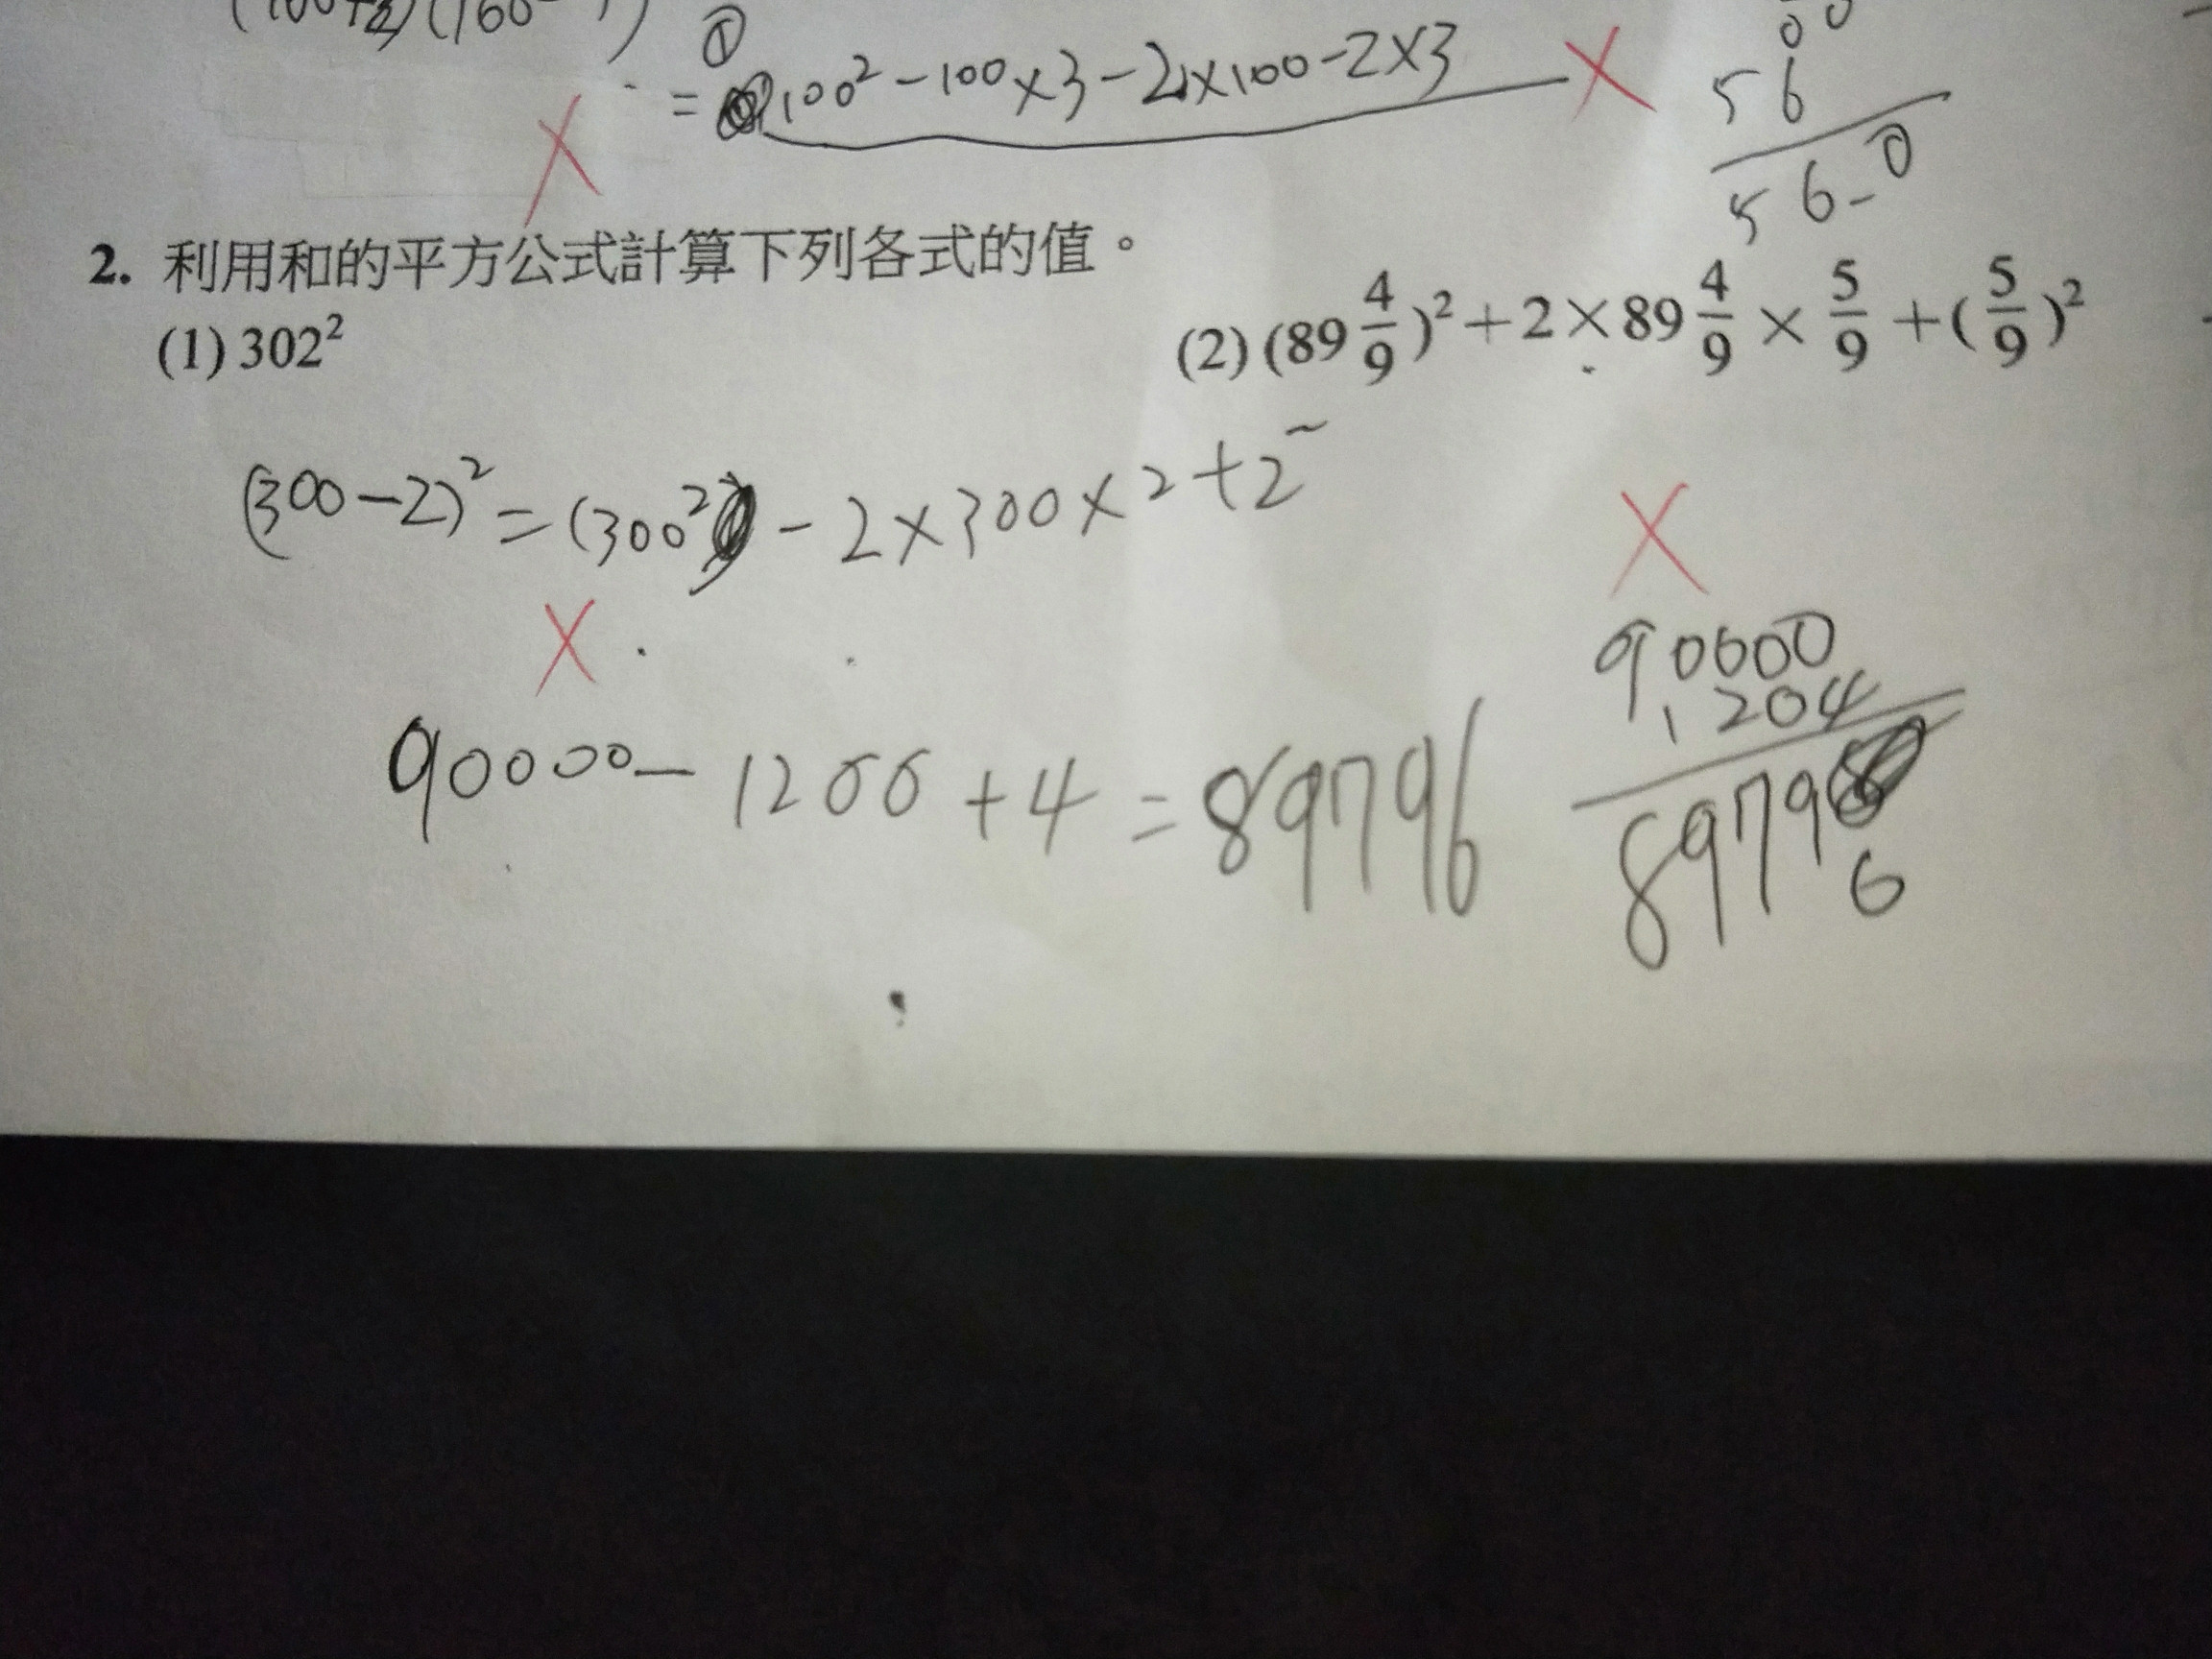 = 100² - 100 × 3 - 2 × 100 - 2 × 3
5 6
5 6 0
2. 利用和的平方公式計算下列各式的值。
(1) 302²
(2) (89 4/9)² + 2 × 89 4/9 × 5/9 + (5/9)²
(300 - 2)² = (300²) - 2 × 300 × 2 + 2
90000 - 1200 + 4 = 89796
90000
1204
8979
6